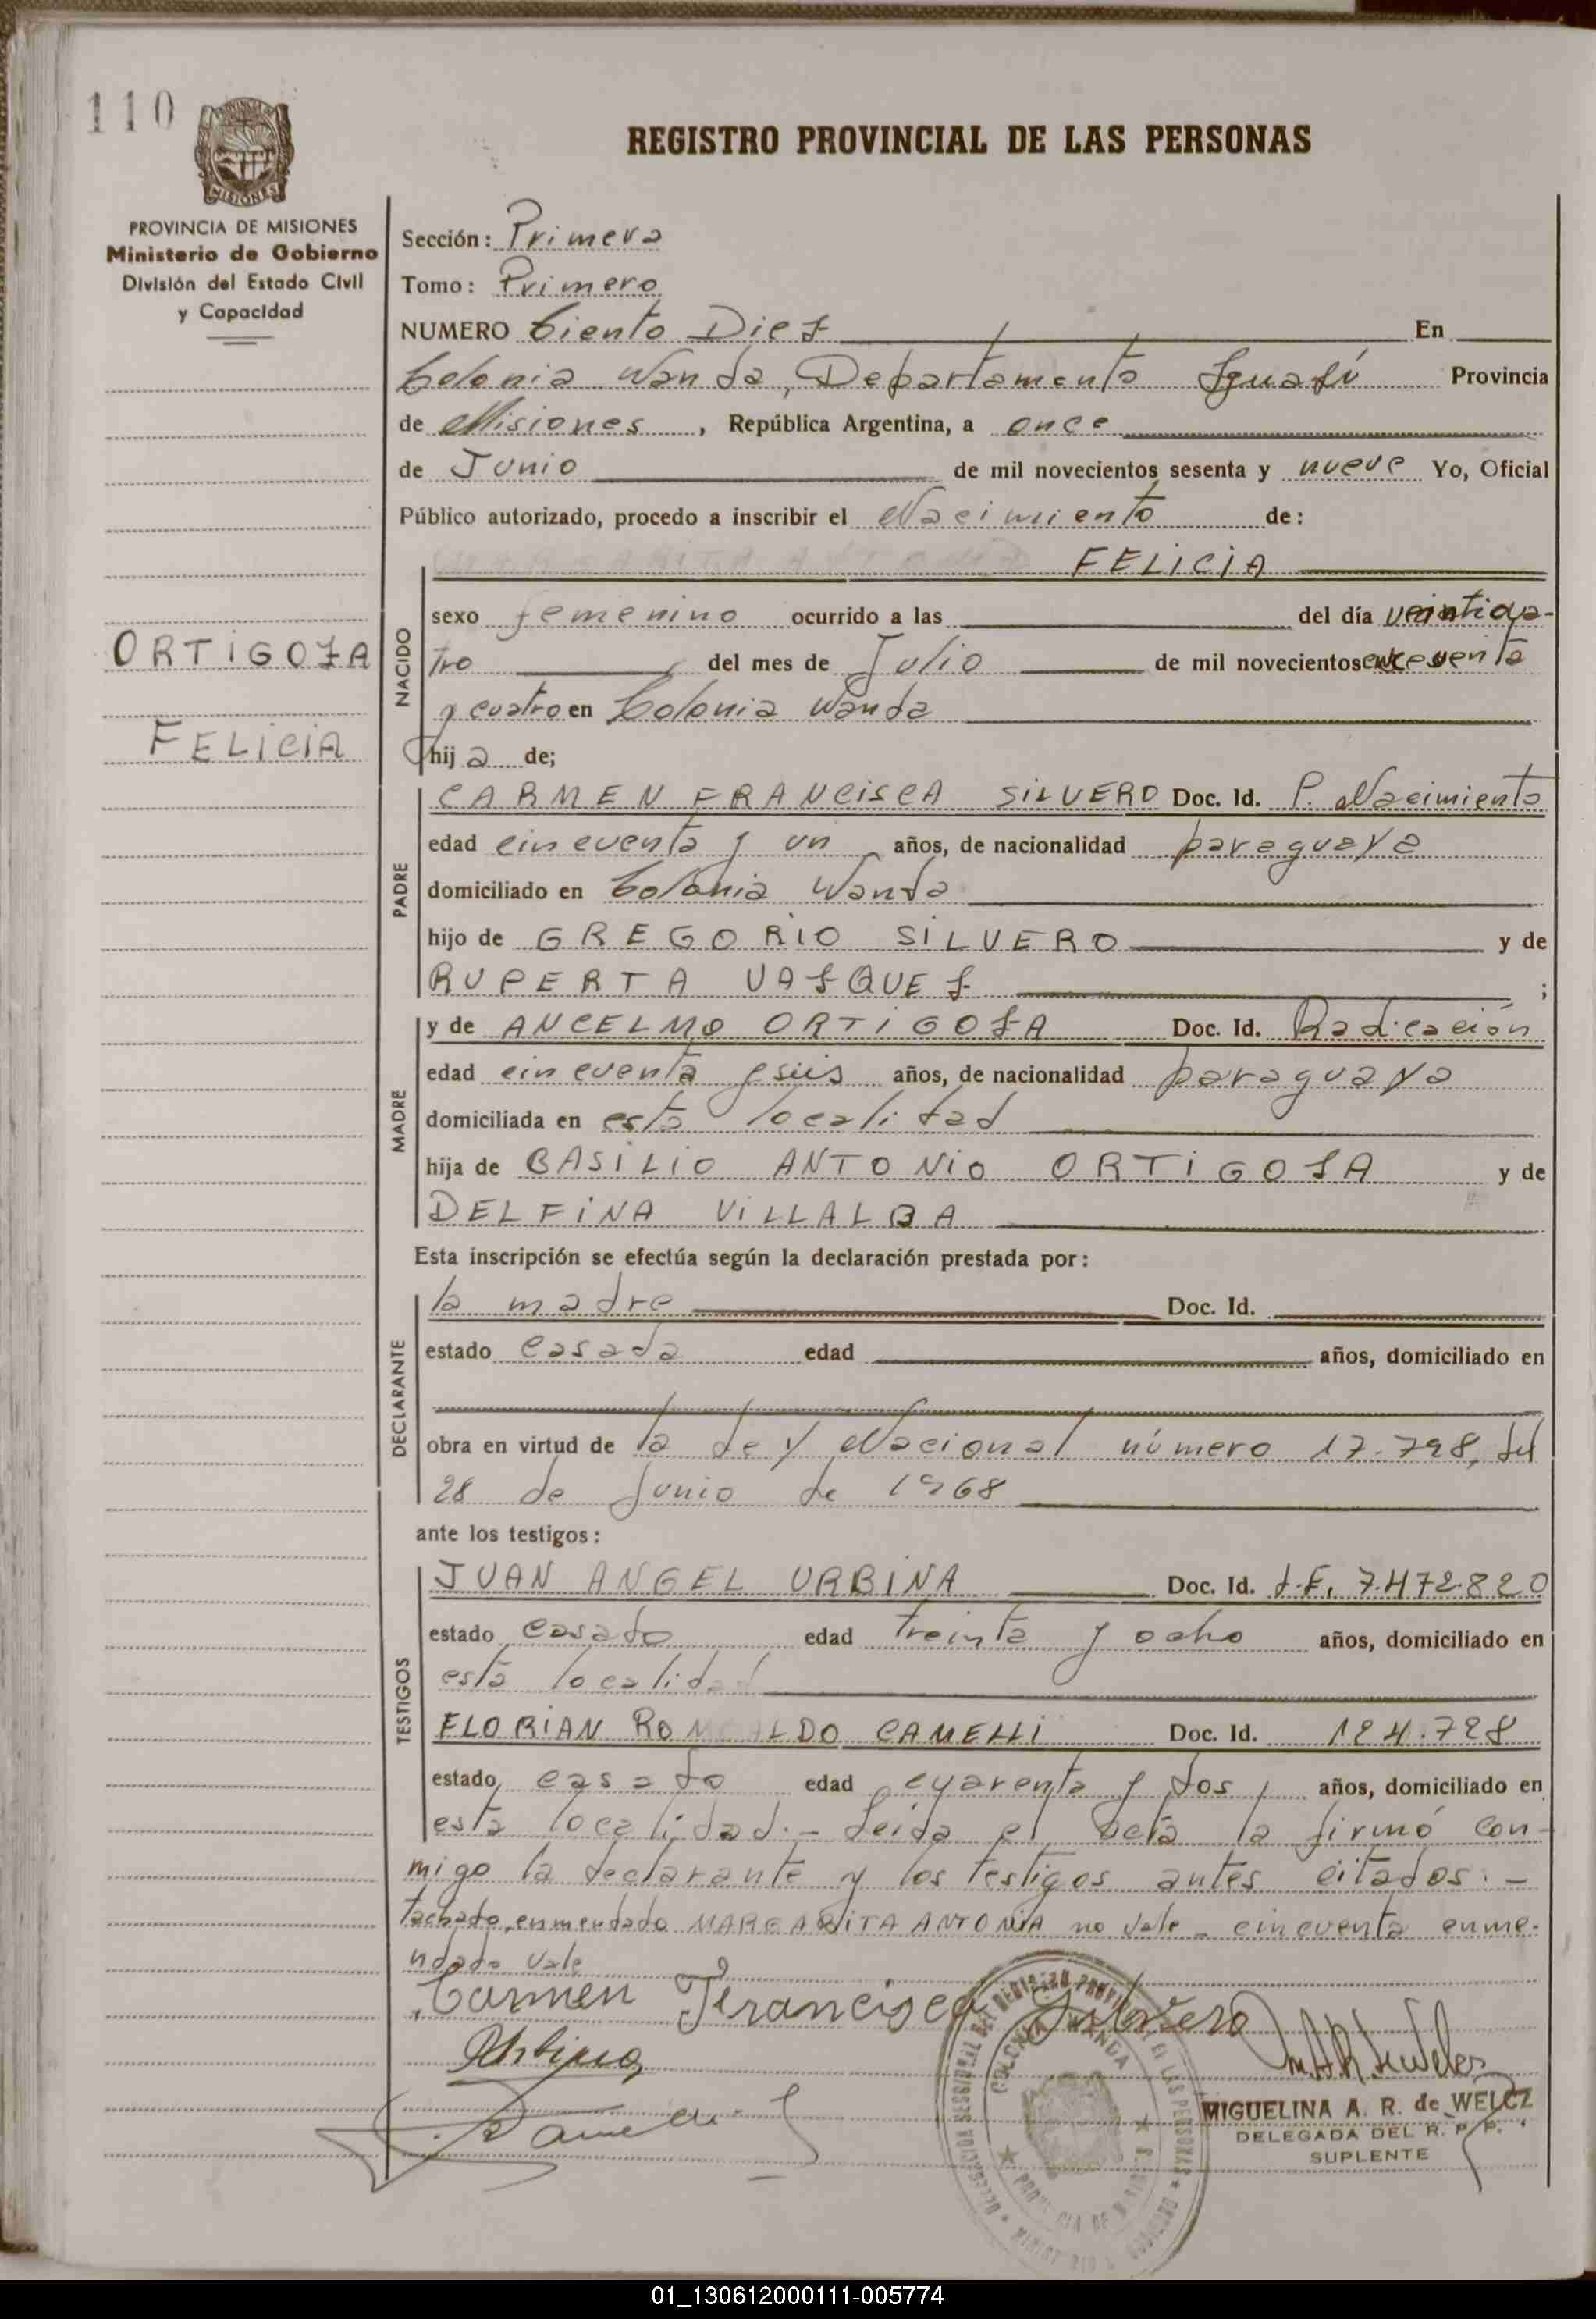 110
REGISTRO PROVINCIAL DE LAS PERSONAS
PROVINCIA DE MISIONES
Ministerio de Gobierno
División del Estado Civil
y Capacidad
ORTIGOZA
FELICIA
Sección: Primera
Tomo: Primero
NUMERO Ciento Diez En
Colonia Wanda, Departamento Iguazú Provincia
de Misiones, República Argentina, a once
de Junio de mil novecientos sesenta y nueve Yo, Oficial
Público autorizado, procedo a inscribir el Nacimiento de:
FELICIA
NACIDO
sexo femenino ocurrido a las del día veinticua-
tro del mes de Julio de mil novecientos cincuenta
y cuatro en Colonia Wanda
hija de;
PADRE
CARMEN FRANCISCA SILVERO Doc. Id. P. Nacimiento
edad cincuenta y un años, de nacionalidad paraguaya
domiciliado en Colonia Wanda
hijo de GREGORIO SILVERO y de
RUPERTA VAZQUEZ ;
MADRE
y de ANCELMO ORTIGOZA Doc. Id. Radicación
edad cincuenta y seis años, de nacionalidad paraguaya
domiciliada en esta localidad
hija de BASILIO ANTONIO ORTIGOZA y de
DELFINA VILLALBA
Esta inscripción se efectúa según la declaración prestada por:
DECLARANTE
la madre Doc. Id.
estado casada edad años, domiciliado en
obra en virtud de la Ley Nacional número 17.798, del
28 de Junio de 1968
ante los testigos:
TESTIGOS
JUAN ANGEL URBINA Doc. Id. L.E. 7.472.820
estado casado edad treinta y ocho años, domiciliado en
esta localidad
FLORIAN ROMUALDO CAMELLI Doc. Id. 124.728
estado casado edad cuarenta y dos años, domiciliado en
esta localidad.- Leida el acta la firmó con-
migo la declarante y los testigos antes citados.-
tachado, enmendado MARGARITA ANTONIA no vale - cincuenta enme-
ndado vale
Carmen Francisca Silvero
Urbina
COLONIA WANDA
MIGUELINA A. R. de WELCZ
DELEGADA DEL R. P. P.
SUPLENTE
01_130612000111-005774